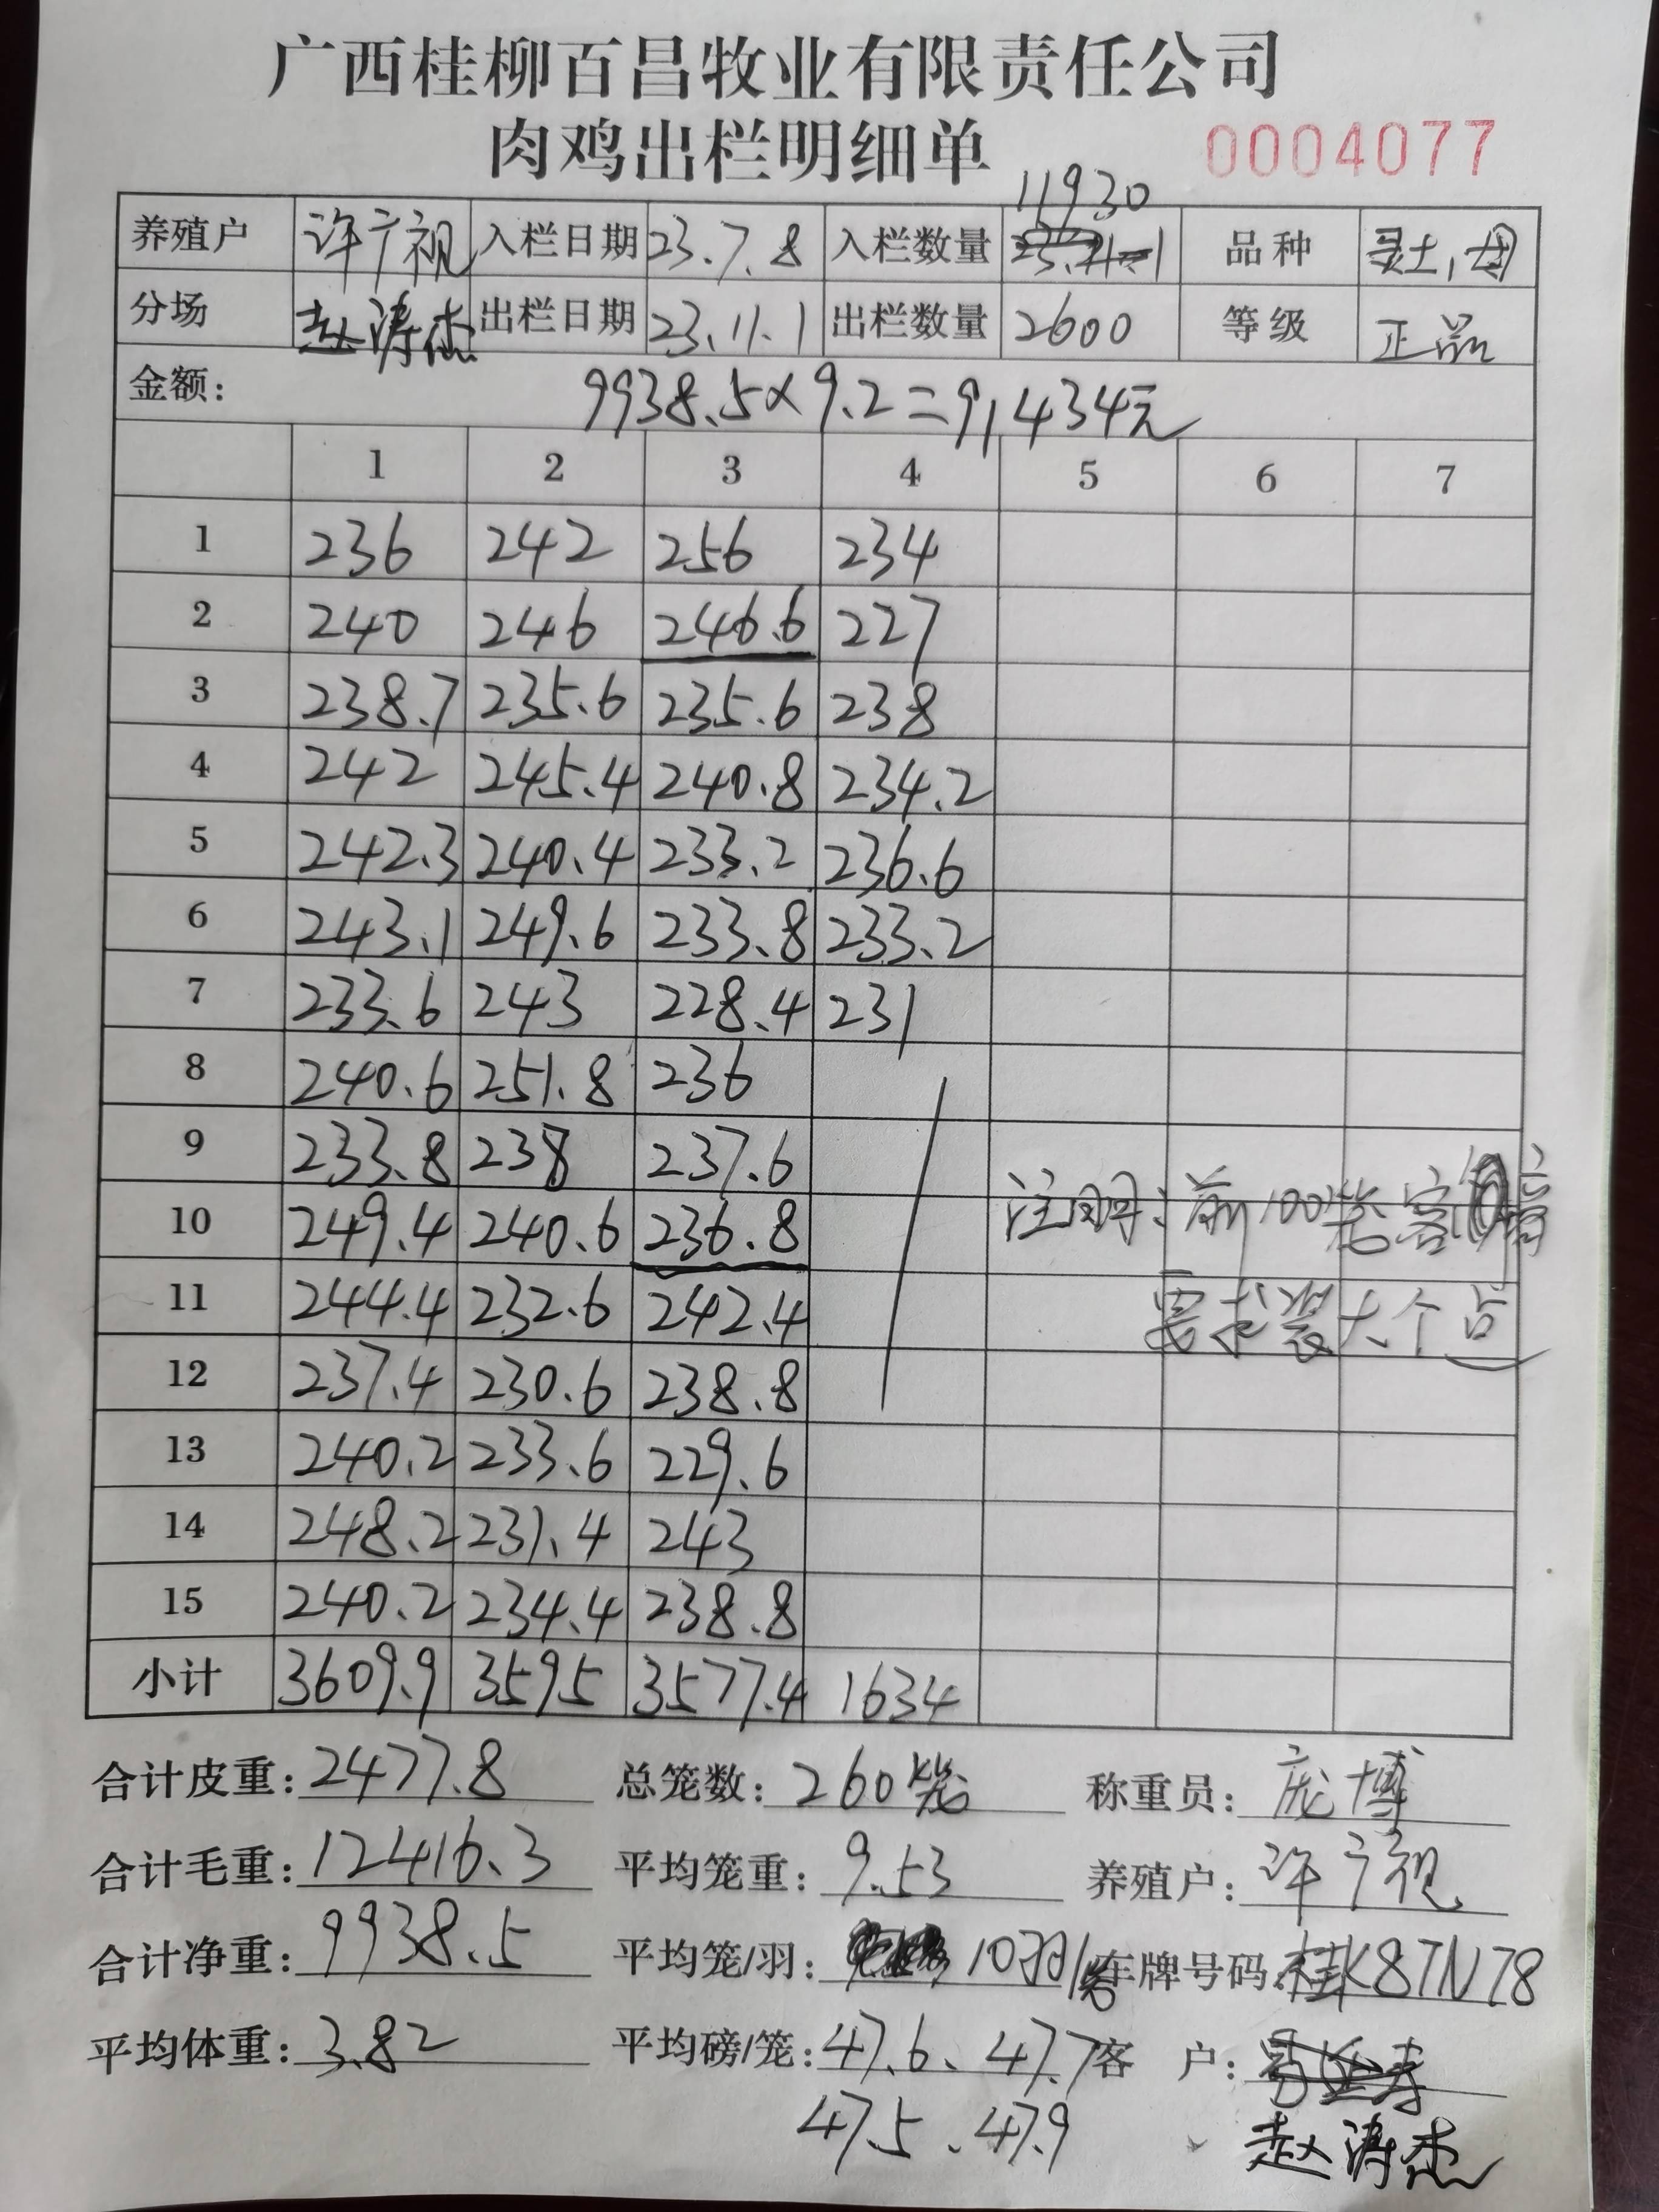 广西桂柳百昌牧业有限责任公司
肉鸡出栏明细单 0004077
11930
养殖户 许广视 入栏日期 23.7.8 入栏数量 品种
分场 赵涛杰 出栏日期 23.11.1 出栏数量 2600 等级 正品
金额: 9938.5×9.2=91434元
1 2 3 4 5 6 7
1 236 242 256 234
2 240 246 246.6 227
3 238.7 235.6 235.6 238
4 242 245.4 240.8 234.2
5 242.3 240.4 233.2 236.6
6 243.1 249.6 233.8 233.2
7 233.6 243 228.4 231
8 240.6 251.8 236
9 233.8 238 237.6
10 249.4 240.6 236.8 注明:前100笼客
11 244.4 232.6 242.4 要求装大个点
12 237.4 230.6 238.8
13 240.2 233.6 229.6
14 248.2 231.4 243
15 240.2 234.4 238.8
小计 3609.9 3595 3577.4 1634
合计皮重:2477.8 总笼数:260笼 称重员:庞博
合计毛重:12416.3 平均笼重:9.53 养殖户:许广视
合计净重:9938.5 平均笼/羽:10羽/笼 车牌号码:桂K87N78
平均体重:3.82 平均磅/笼:47.6、47.7 客 户:
47.5、47.9 赵涛杰